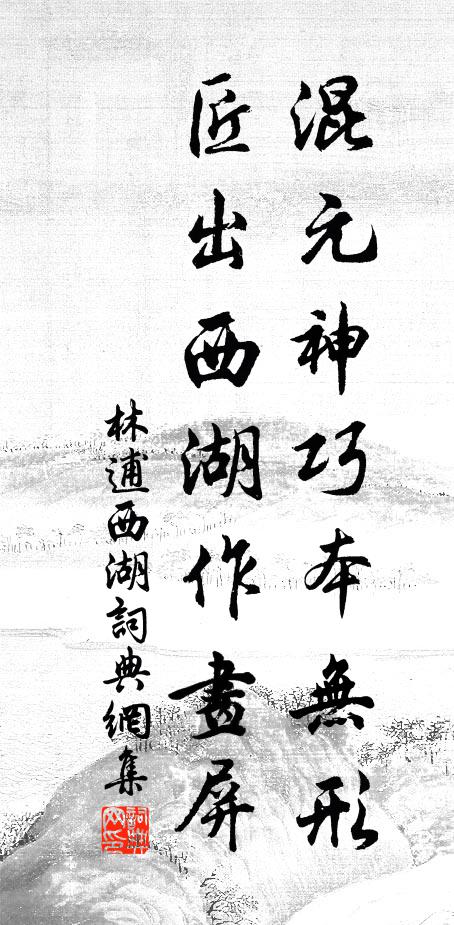 混元神巧本無形
匠出西湖作畫屏
林逋西湖詞典網集
詞典网印